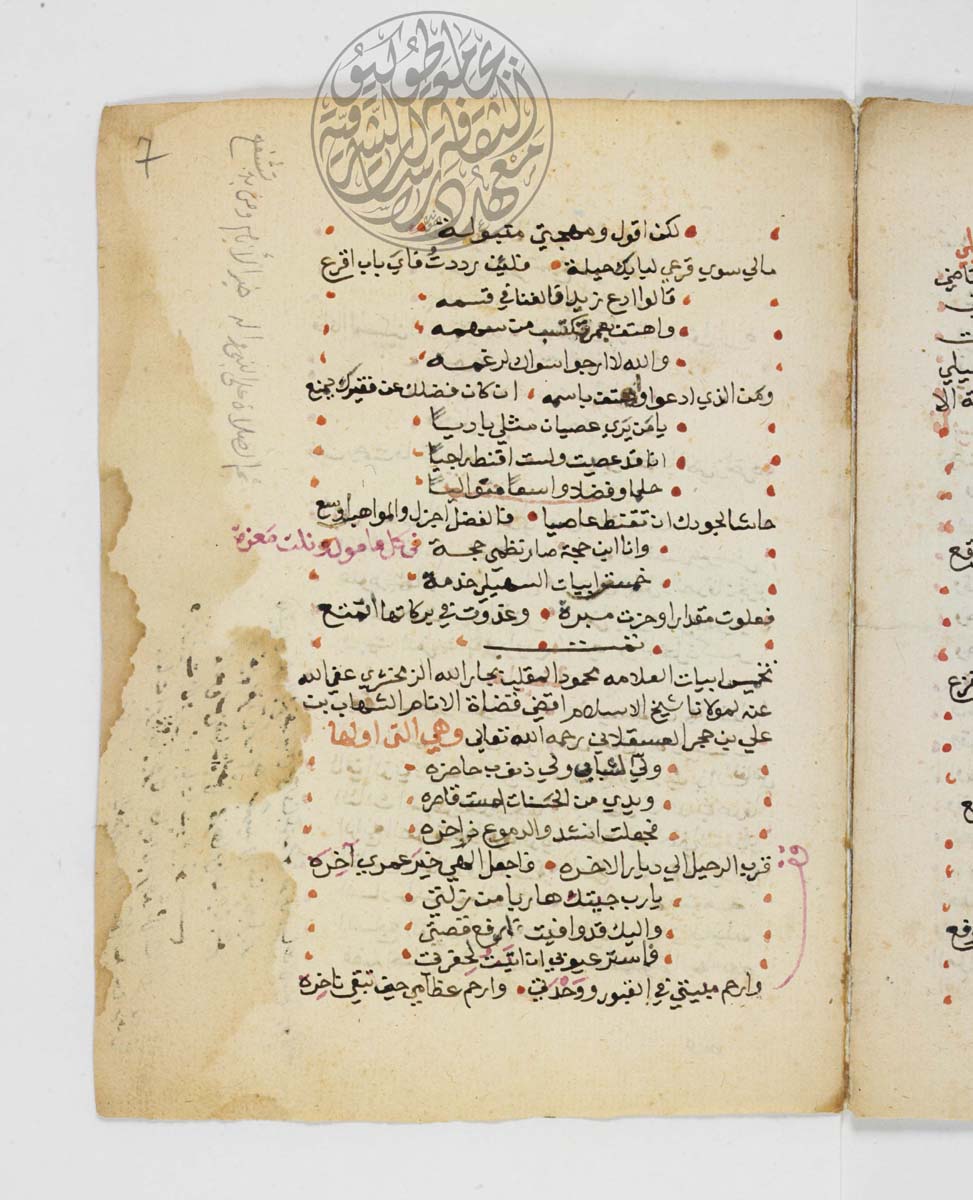 لكن اقول ومهجتي متبولة
مالي سوي قرعي لبابك حيلة فلئن رددتُ فاي باب اقرع
قالوا ادع زيدا قالفنا في قسمه
واهتف بعمر تكتب من سهمه
والله لا ارجو سواك لرغمه
ومن الذي ادعوا واهتف باسمه ان كان فضلك عن فقيرك يمنع
يا من يري عصيان مثلي يا ربيا
انا قد عصيت ولست اقنط راجيا
حلما وفضلا واسعا متواليا
حاشا لجودك ان تقنط عاصيا فالفضل اجزل والمواهب اوسع
وانا ابن حجة صار نظمي حجة في كل مامول ونلت معزة
خمستر ابيات السهيلي خدمة
فعلوت مقدارا وحزت مبرة وغدوت في بركاتها اتمتع
تمت
تخميس ابيات العلامه محمود الملقب بجار الله الزمخشري عفي الله
عنه لمولانا شيخ الاسلام اقضي قضاة الانام الشهاب بن
علي بن حجر العسقلاني رحمه الله تعالي وهي التي اولها
ولي الشبابي ولي ذنوب حاضره
ويدي من الحسنات امست قاصره
فجعلت انشد والدموع زاخره
قرب الرحيل الي ديار الاخره فاجعل الهي خير عمري آخره
يا رب جيتك هاربا من زلتي
واليك قد وافيت لرفع قصتي
فاستر عيوبي ان اتيت لحفرتي
وارحم مبيتي في القبور ووحدتي وارحم عظامي حين تبقي ناخره
ثم الصلاة على النبي واله خير الأنام ومن به تشفع
7
معهد الثقافة والدراسات الشرقية
جامعة طوكيو